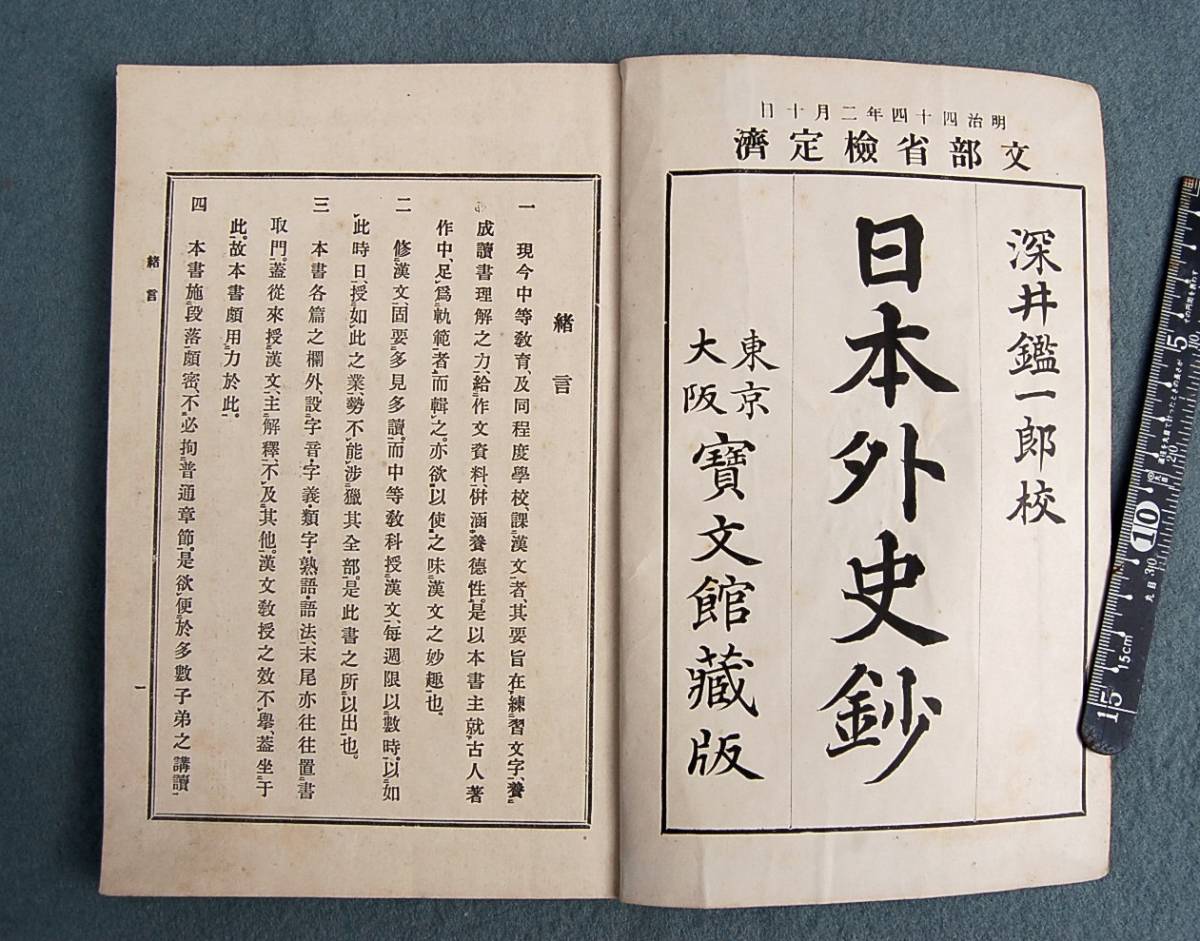 明治四十四年二月十日
文部省檢定濟
深井鑑一郎校
日本外史鈔
東京
大阪
寶文館藏版
緒言
一 現今中等敎育、及同程度學校、課漢文者、其要旨在練習文字、養
成讀書理解之力、給作文資料、倂涵養德性。是以本書主就古人著
作中、足爲軌範者、而輯之。亦欲以使之味漢文之妙趣也。
二 修漢文、固要多見多讀。而中等敎科授漢文、每週限以數時。以如
此時日、授如此之業、勢不能涉獵其全部。是此書之所以出也。
三 本書各篇之欄外、設字音・字義・類字・熟語・語法、末尾亦往往置書
取門。蓋從來授漢文、主解釋、不及其他。漢文敎授之效不擧、蓋坐于
此。故本書頗用力於此。
四 本書施段落頗密、不必拘普通章節。是欲便於多數子弟之講讀、
緒言
一
15
10
5
15cm
20
30